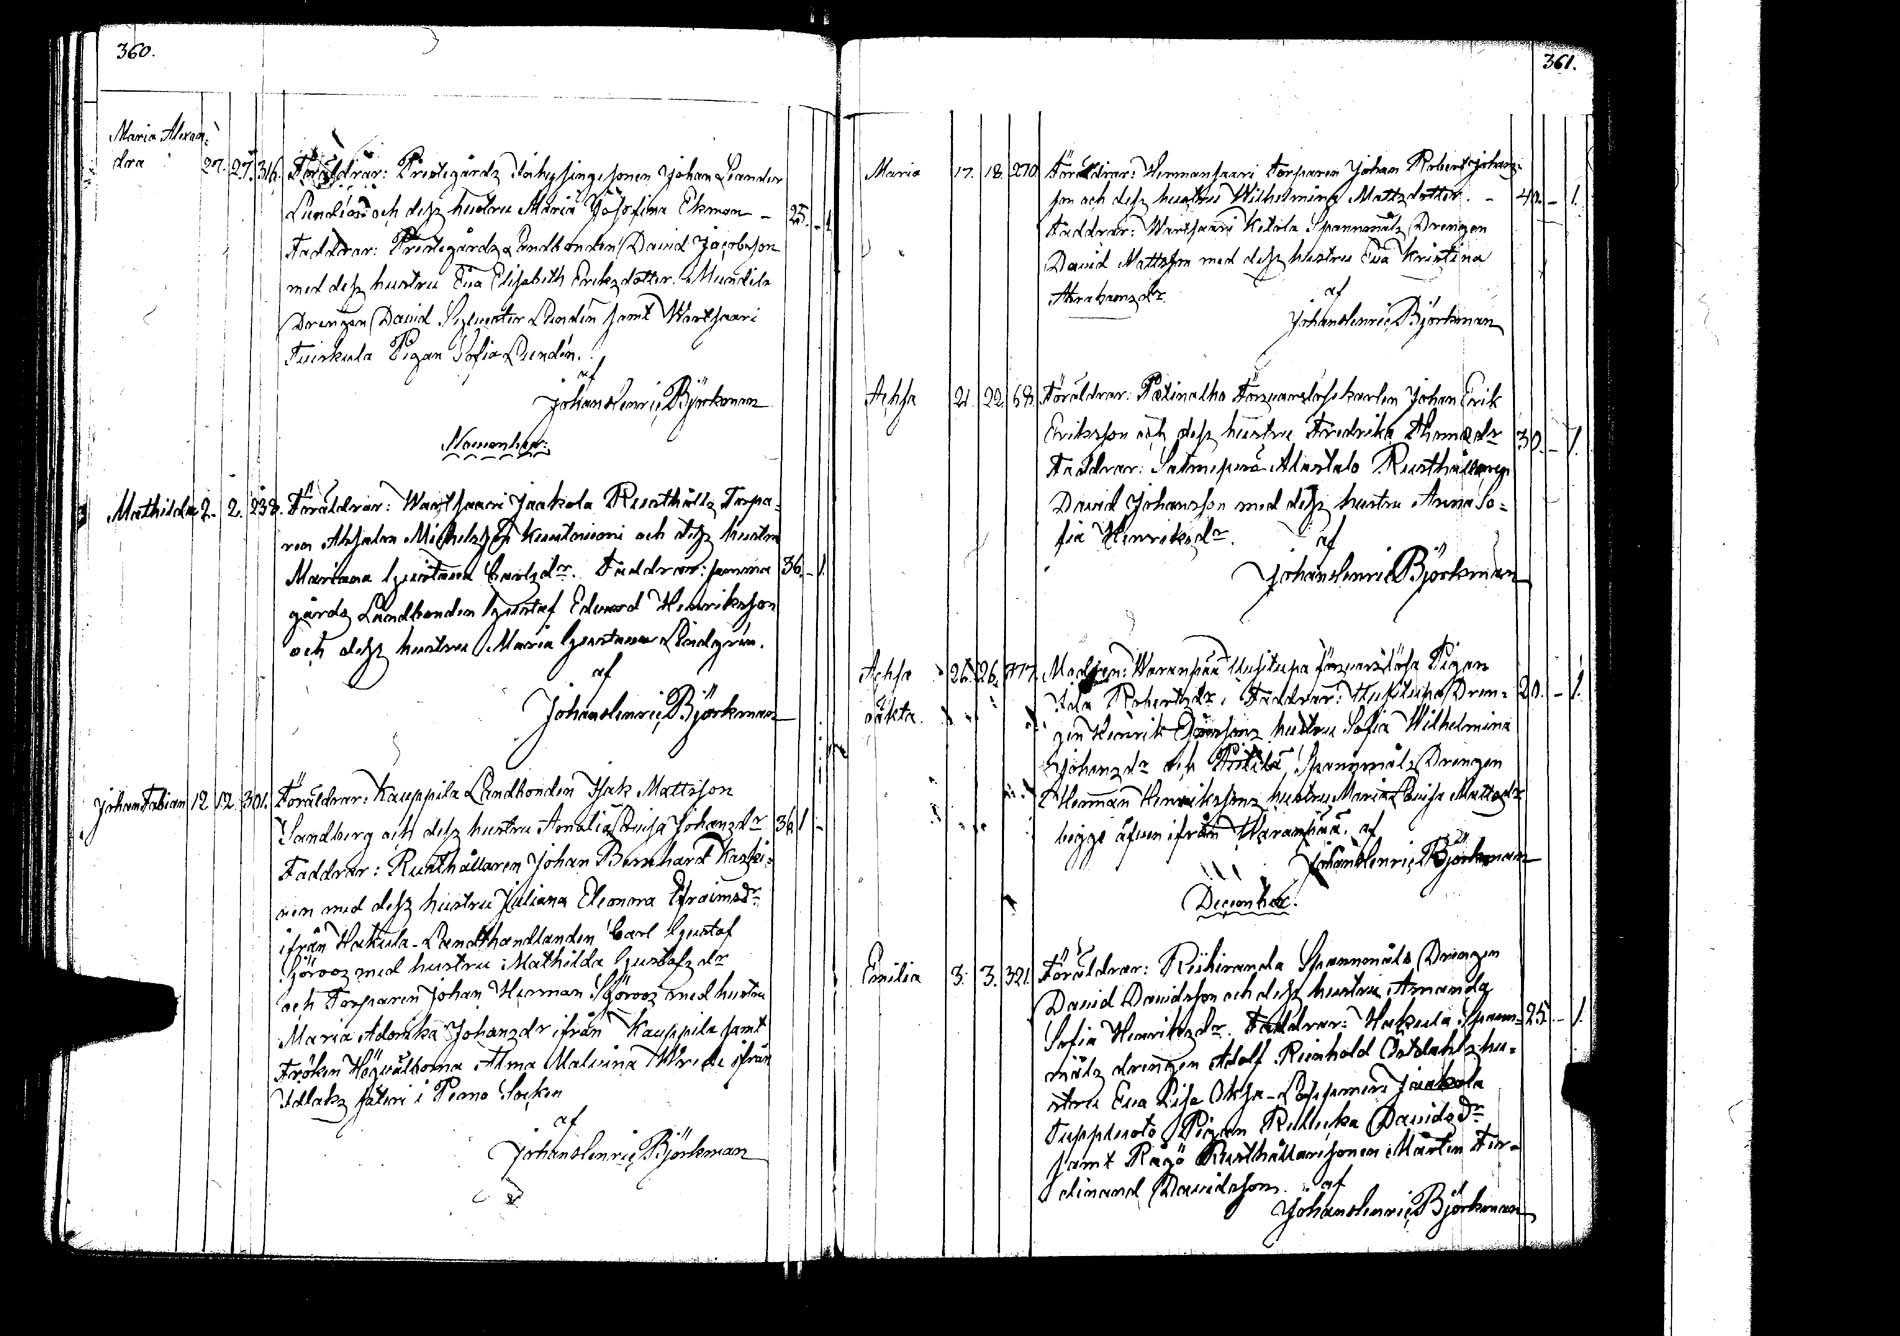 360.
Maria Alexan-
dra 27. 27. 316. Föräldrar: Prestegårds Johan Leander
Lundén och dess hustru Maria Josefina Ekman - 25. - 1
Faddrar: Prestegårds Landbonden David Jacobsson
med dess hustru Eva Elisabeth Eriksdotter. Mundila
Drengen David Sylvester Lundén samt Wartsaari
Tuirkula Pigan Sofia Lundén.
af
Johan Henric Björkman
November
Mathilda 2. 2. 238. Föräldrar: Wartsaari Jaakola Rusthålls Torpa-
ren Absalon Michelsson och dess hustru
Mariana Gustava Carlsdr. Faddrar: samma 36. - 1.
gårds Landbonden Gustaf Edvard Henriksson
och dess hustru Maria Gustava Lindgrén.
af
Johan Henric Björkman
Johan Fabian 12 12 301. Föräldrar: Kauppila Landbonden Isak Mattsson
Sandberg och dess hustru Amalia Lovisa Johansdr 36. 1 -
Faddrar: Rusthållaren Johan Bernhard
nen med dess hustru Juliana Eleonora Efraimsdr
ifrån Hakula - Landthandlanden Carl Gustaf
Sjöroos med hustru Mathilda Gustafsdr
och Torparen Johan Herman Sjöroos med hustru
Maria Adorika Johansdr ifrån Kauppila samt
Fröken Högvälborna Alma Malvina Wrede ifrån
säteri i Perno Socken
af
Johan Henric Björkman
361.
Maria 17. 18. 270 Föräldrar: Hermansaari Torparen Johan Robert Johans-
son och dess hustru Wilhelmina Mattsdotter. - 40. - 1.
Faddrar: Wartsaari Ketola Spannmåls Drengen
David Mattsson med dess hustru Eva Kristina
Abrahamsdr.
af
Johan Henric Björkman
21. 22. 68. Föräldrar: Försvarslöskarlen Johan Erik
Eriksson och dess hustru Fredrika 30. - 1.
Faddrar: Alastalo Rusthållaren
David Johansson med dess hustru Anna So-
fia Henriksdr.
af
Johan Henric Björkman
oäkta. 26. 26. 777. Modren: Waranpää Uusitupa försvarslösa Pigan
Ida Robertsdr. Faddrar: Uusitupa Dren- 20. - 1.
gen Henrik hustru Sofia Wilhelmina
Johansdr och Spannmåls Drengen
Herman Henrikssons hustru Maria Lovisa Mattsdr
begge äfven ifrån Waranpää. af
Johan Henric Björkman
December.
Emilia 3. 3. 321. Föräldrar: Riihiranda Spannmåls Drengen
David Davidsson och dess hustru Amanda
Sofia Henriksdr. Faddrar: Hakula Spann- 25. - 1.
måls drengen Adolf Reinhold Östdahls hu-
stru Eva Lisa Jaakola
Pigan Davidsdr
samt Rågö Rusthållaresonen Mårten Fer-
dinand Davidsson. af
Johan Henric Björkman